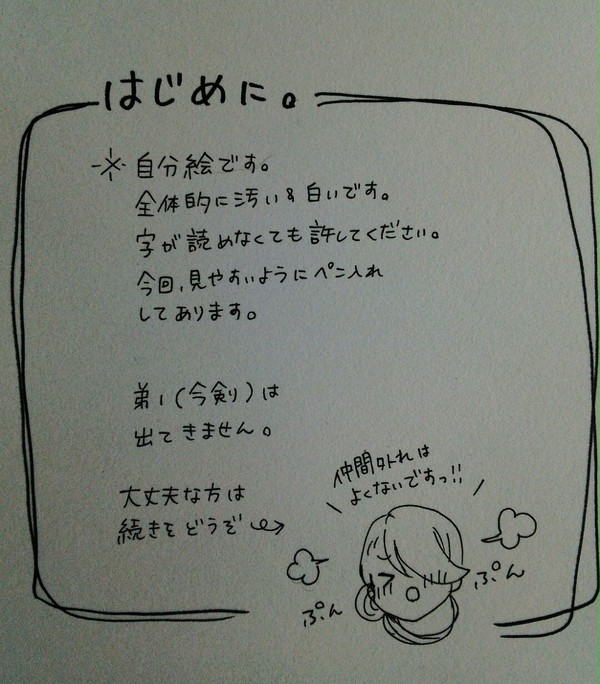 はじめに。
※自分絵です。
全体的に汚い&白いです。
字が読めなくても許してください。
今回,見やすいようにペン入れ
してあります。
弟1(今剣)は
出てきません。
大丈夫な方は
続きをどうぞ
仲間外れは
よくないですっ!!
ぷん
ぷん